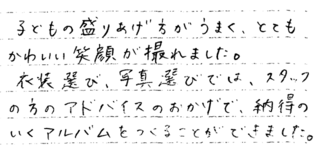 子どもの盛りあげ方がうまく、とても
かわいい笑顔が撮れました。
衣装選び、写真選びでは、スタッフ
の方のアドバイスのおかげで、納得の
いくアルバムをつくることができました。